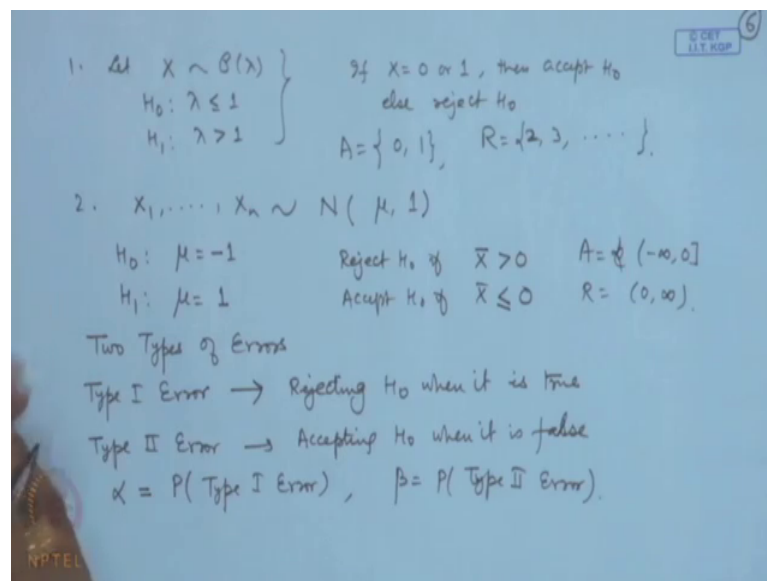 6
© CET
I.I.T. KGP
1. Let X ~ P(λ)
H₀: λ ≤ 1
H₁: λ > 1
If X = 0 or 1, then accept H₀
else reject H₀
A = {0, 1}, R = {2, 3, ‥‥ }.
2. X₁, ‥‥, Xₙ ~ N( μ, 1)
H₀: μ = -1 Reject H₀ if X̄ > 0 A = (-∞, 0]
H₁: μ = 1 Accept H₀ if X̄ ≤ 0 R = (0, ∞).
Two Types of Errors
Type I Error → Rejecting H₀ when it is true
Type II Error → Accepting H₀ when it is false
α = P( Type I Error), β = P( Type II Error).
NPTEL